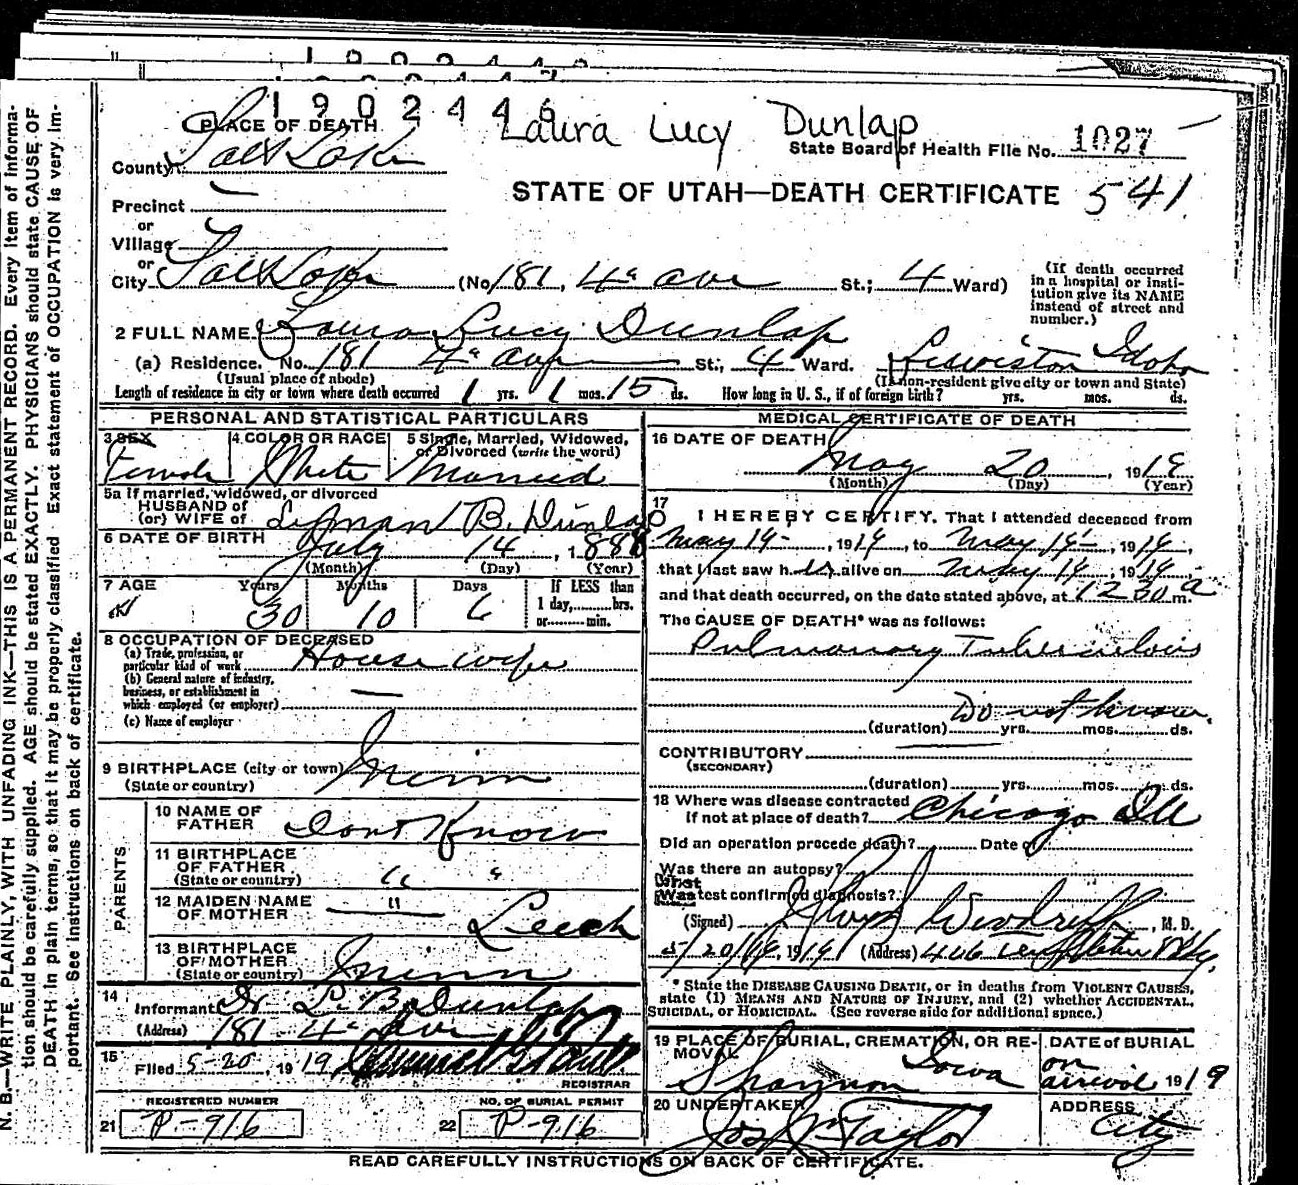 1902446
Laura Lucy Dunlap
PLACE OF DEATH
State Board of Health File No. 1027
County Salt Lake
STATE OF UTAH—DEATH CERTIFICATE 541
Precinct
or
Village
or
City Salt Lake (No. 181, 4" ave St.; 4 Ward)
(If death occurred in a hospital or insti-
tution give its NAME
instead of street and
number.)
2 FULL NAME Laura Lucy Dunlap
(a) Residence. No. 181 4" ave St.; 4 Ward. Lewiston Idaho
(Usual place of abode)
(If non-resident give city or town and State)
Length of residence in city or town where death occurred 1 yrs. 1 mos. 15 ds. How long in U. S., if of foreign birth? yrs. mos. ds.
PERSONAL AND STATISTICAL PARTICULARS
3 SEX
Female
4 COLOR OR RACE
White
5 Single, Married, Widowed,
or Divorced (write the word)
Married
5a If married, widowed, or divorced
HUSBAND of
(or) WIFE of Lyman B. Dunlap
6 DATE OF BIRTH
July 14, 1888
(Month) (Day) (Year)
7 AGE
Years Months Days
30 10 6
If LESS than
1 day, hrs.
or min.
8 OCCUPATION OF DECEASED
(a) Trade, profession, or
particular kind of work Housewife
(b) General nature of industry,
business, or establishment in
which employed (or employer) —
(c) Name of employer
9 BIRTHPLACE (city or town)
(State or country) Minn
PARENTS
10 NAME OF
FATHER Dont Know
11 BIRTHPLACE
OF FATHER
(State or country) " "
12 MAIDEN NAME
OF MOTHER " Leech
13 BIRTHPLACE
OF MOTHER
(State or country) Minn
14
Informant Dr L. B. Dunlap
(Address) 181 - 4" Ave
15
Filed 5-20, 1919
REGISTRAR
REGISTERED NUMBER
21 P-916
NO. OF BURIAL PERMIT
22 P-916
MEDICAL CERTIFICATE OF DEATH
16 DATE OF DEATH
May 20, 1919
(Month) (Day) (Year)
17
I HEREBY CERTIFY, That I attended deceased from
May 19, 1919, to May 19, 1919,
that I last saw her alive on May 19, 1919,
and that death occurred, on the date stated above, at 1230 a m.
The CAUSE OF DEATH* was as follows:
Pulmonary Tuberculosis
Do not know.
(duration) yrs. mos. ds.
CONTRIBUTORY
(SECONDARY)
(duration) yrs. mos. ds.
18 Where was disease contracted
if not at place of death? Chicago Ill
Did an operation precede death? Date of
Was there an autopsy?
What
test confirmed diagnosis?
(Signed) Woodruff, M. D.
5/20/19, 1919 (Address) 406 Bldg.
* State the DISEASE CAUSING DEATH, or in deaths from VIOLENT CAUSES,
state (1) MEANS AND NATURE OF INJURY, and (2) whether ACCIDENTAL,
SUICIDAL, or HOMICIDAL. (See reverse side for additional space.)
19 PLACE OF BURIAL, CREMATION, OR RE-
MOVAL
Shannon Iowa
DATE of BURIAL
on
arrival 1919
20 UNDERTAKER
Jos Wm Taylor
ADDRESS
City
READ CAREFULLY INSTRUCTIONS ON BACK OF CERTIFICATE.
N. B.—WRITE PLAINLY, WITH UNFADING INK—THIS IS A PERMANENT RECORD. Every item of informa-
tion should be carefully supplied. AGE should be stated EXACTLY. PHYSICIANS should state CAUSE OF
DEATH in plain terms, so that it may be properly classified. Exact statement of OCCUPATION is very im-
portant. See instructions on back of certificate.